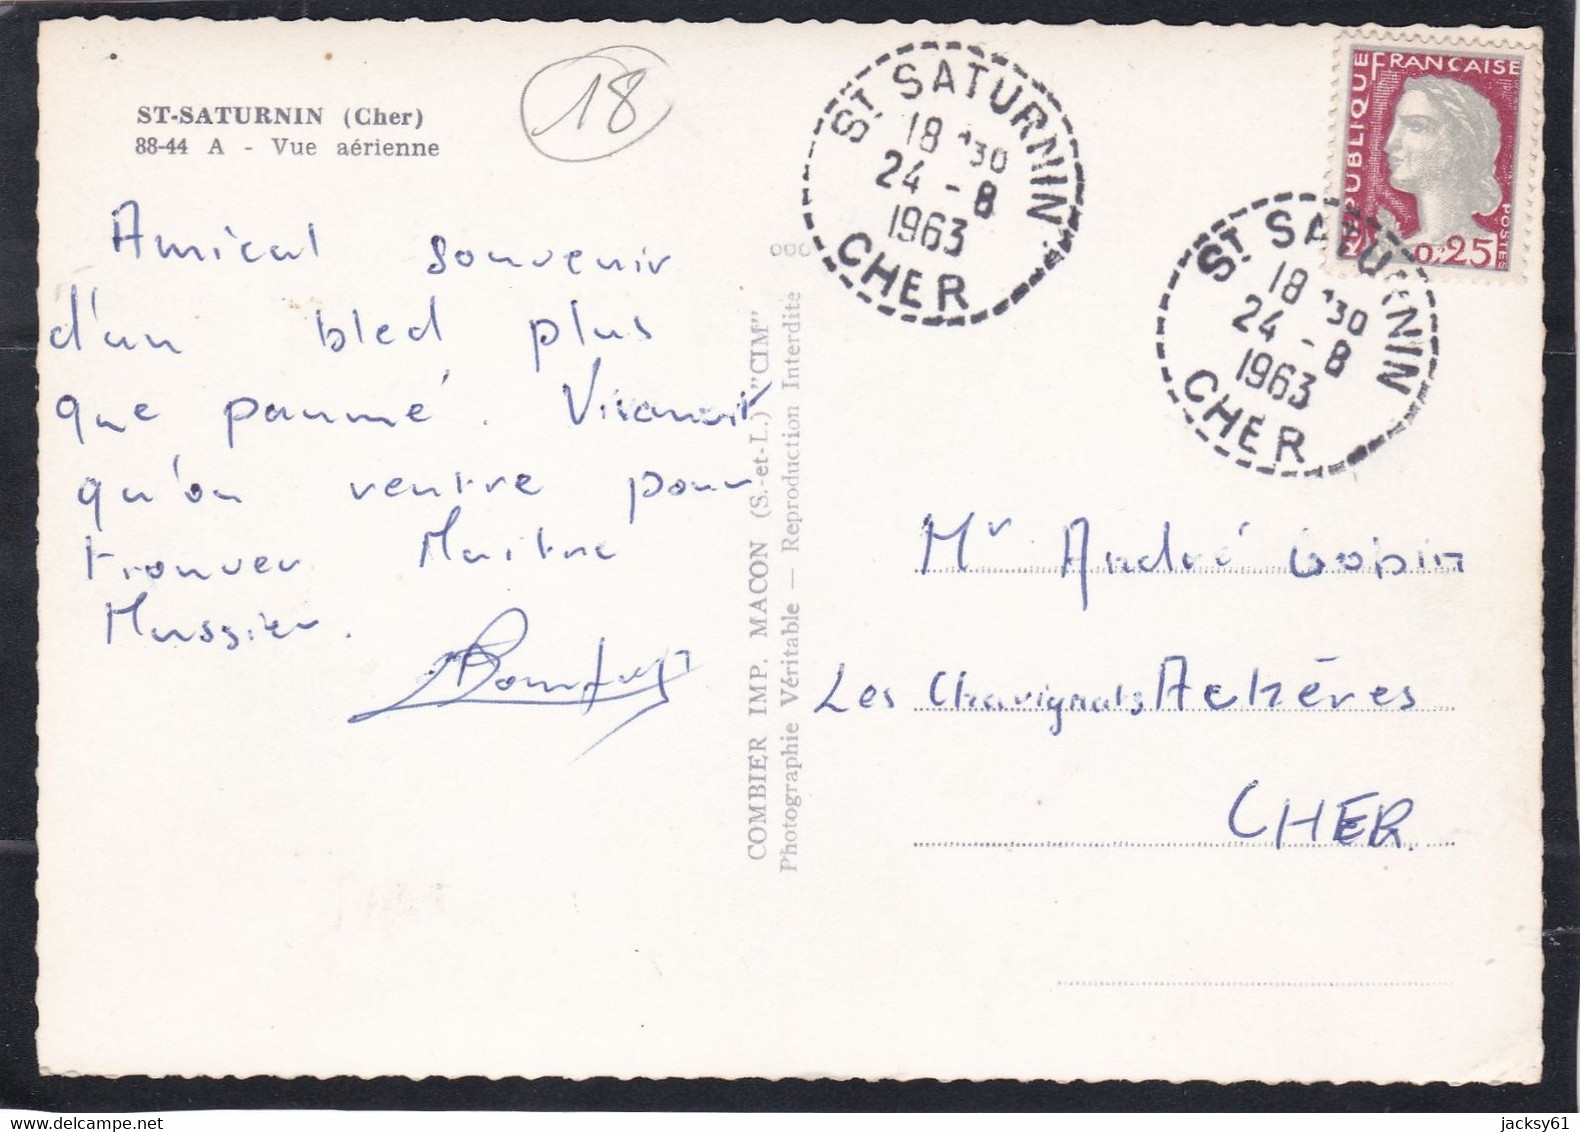 ST-SATURNIN (Cher)
88-44 A - Vue aérienne
18
Amical souvenir
d'un bled plus
que paumé. Vivement
qu'on rentre pour
trouver Maitre
Mussier.
COMBIER IMP. MACON (S.-et-L.) "CIM"
Photographie Véritable — Reproduction Interdite
ST SATURNIN
18 30
24 - 8
1963
CHER
RÉPUBLIQUE FRANÇAISE
POSTES
0,25
ST SATURNIN
18 30
24 - 8
1963
CHER
Mr André Gobin
Les Chavignats Achères
CHER
jacksy61